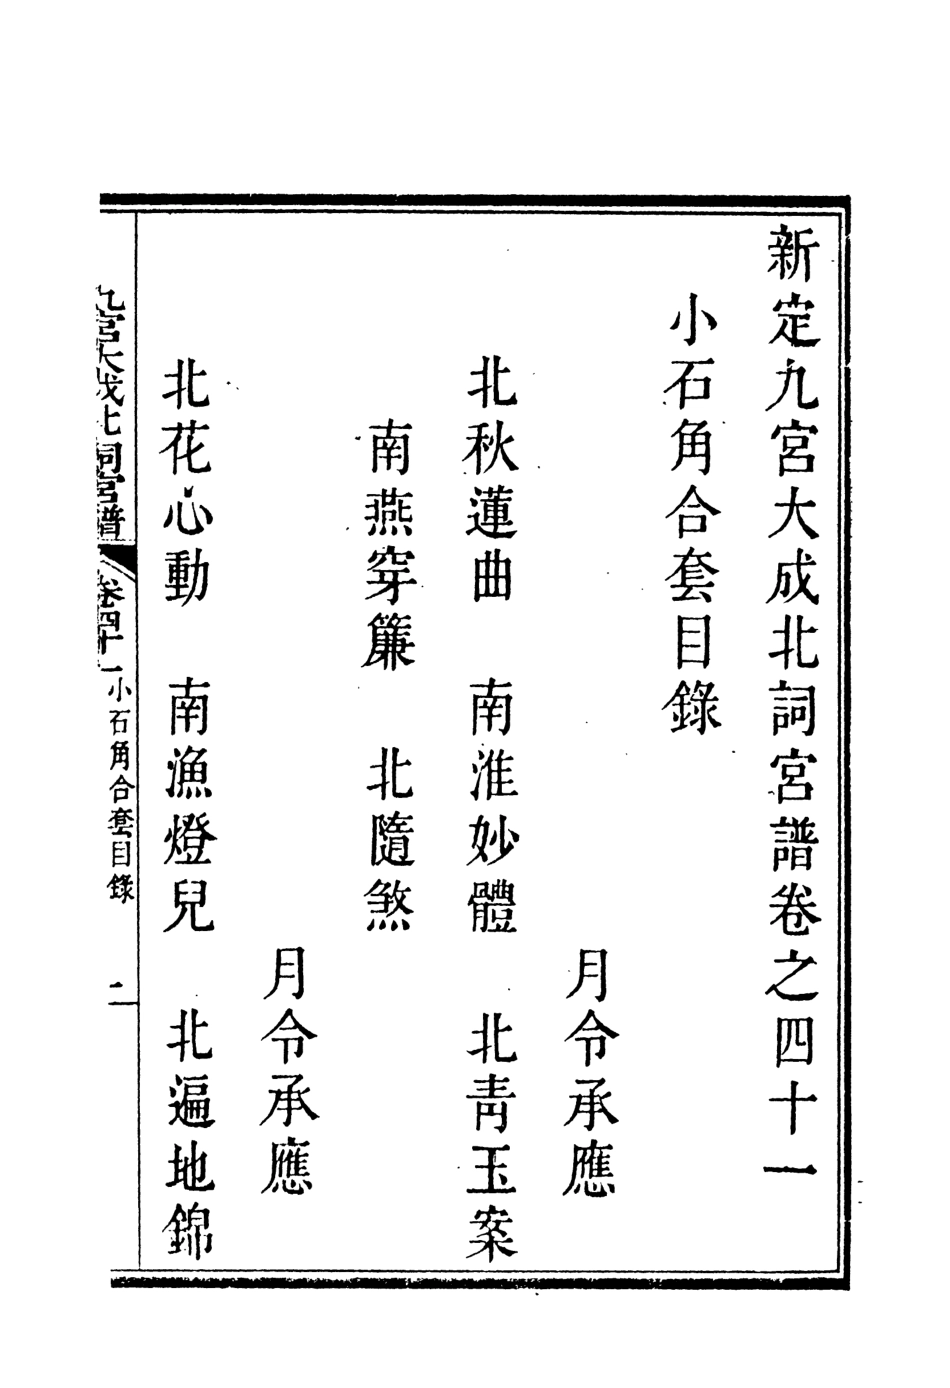 新定九宮大成北詞宮譜卷之四十一
小石角合套目錄
月令承應
北秋蓮曲　南淮妙體　北青玉案
南燕穿簾　北隨煞
月令承應
北花心動　南漁燈兒　北遍地錦
九宮大成北詞宮譜　卷四十一　小石角合套目錄　一